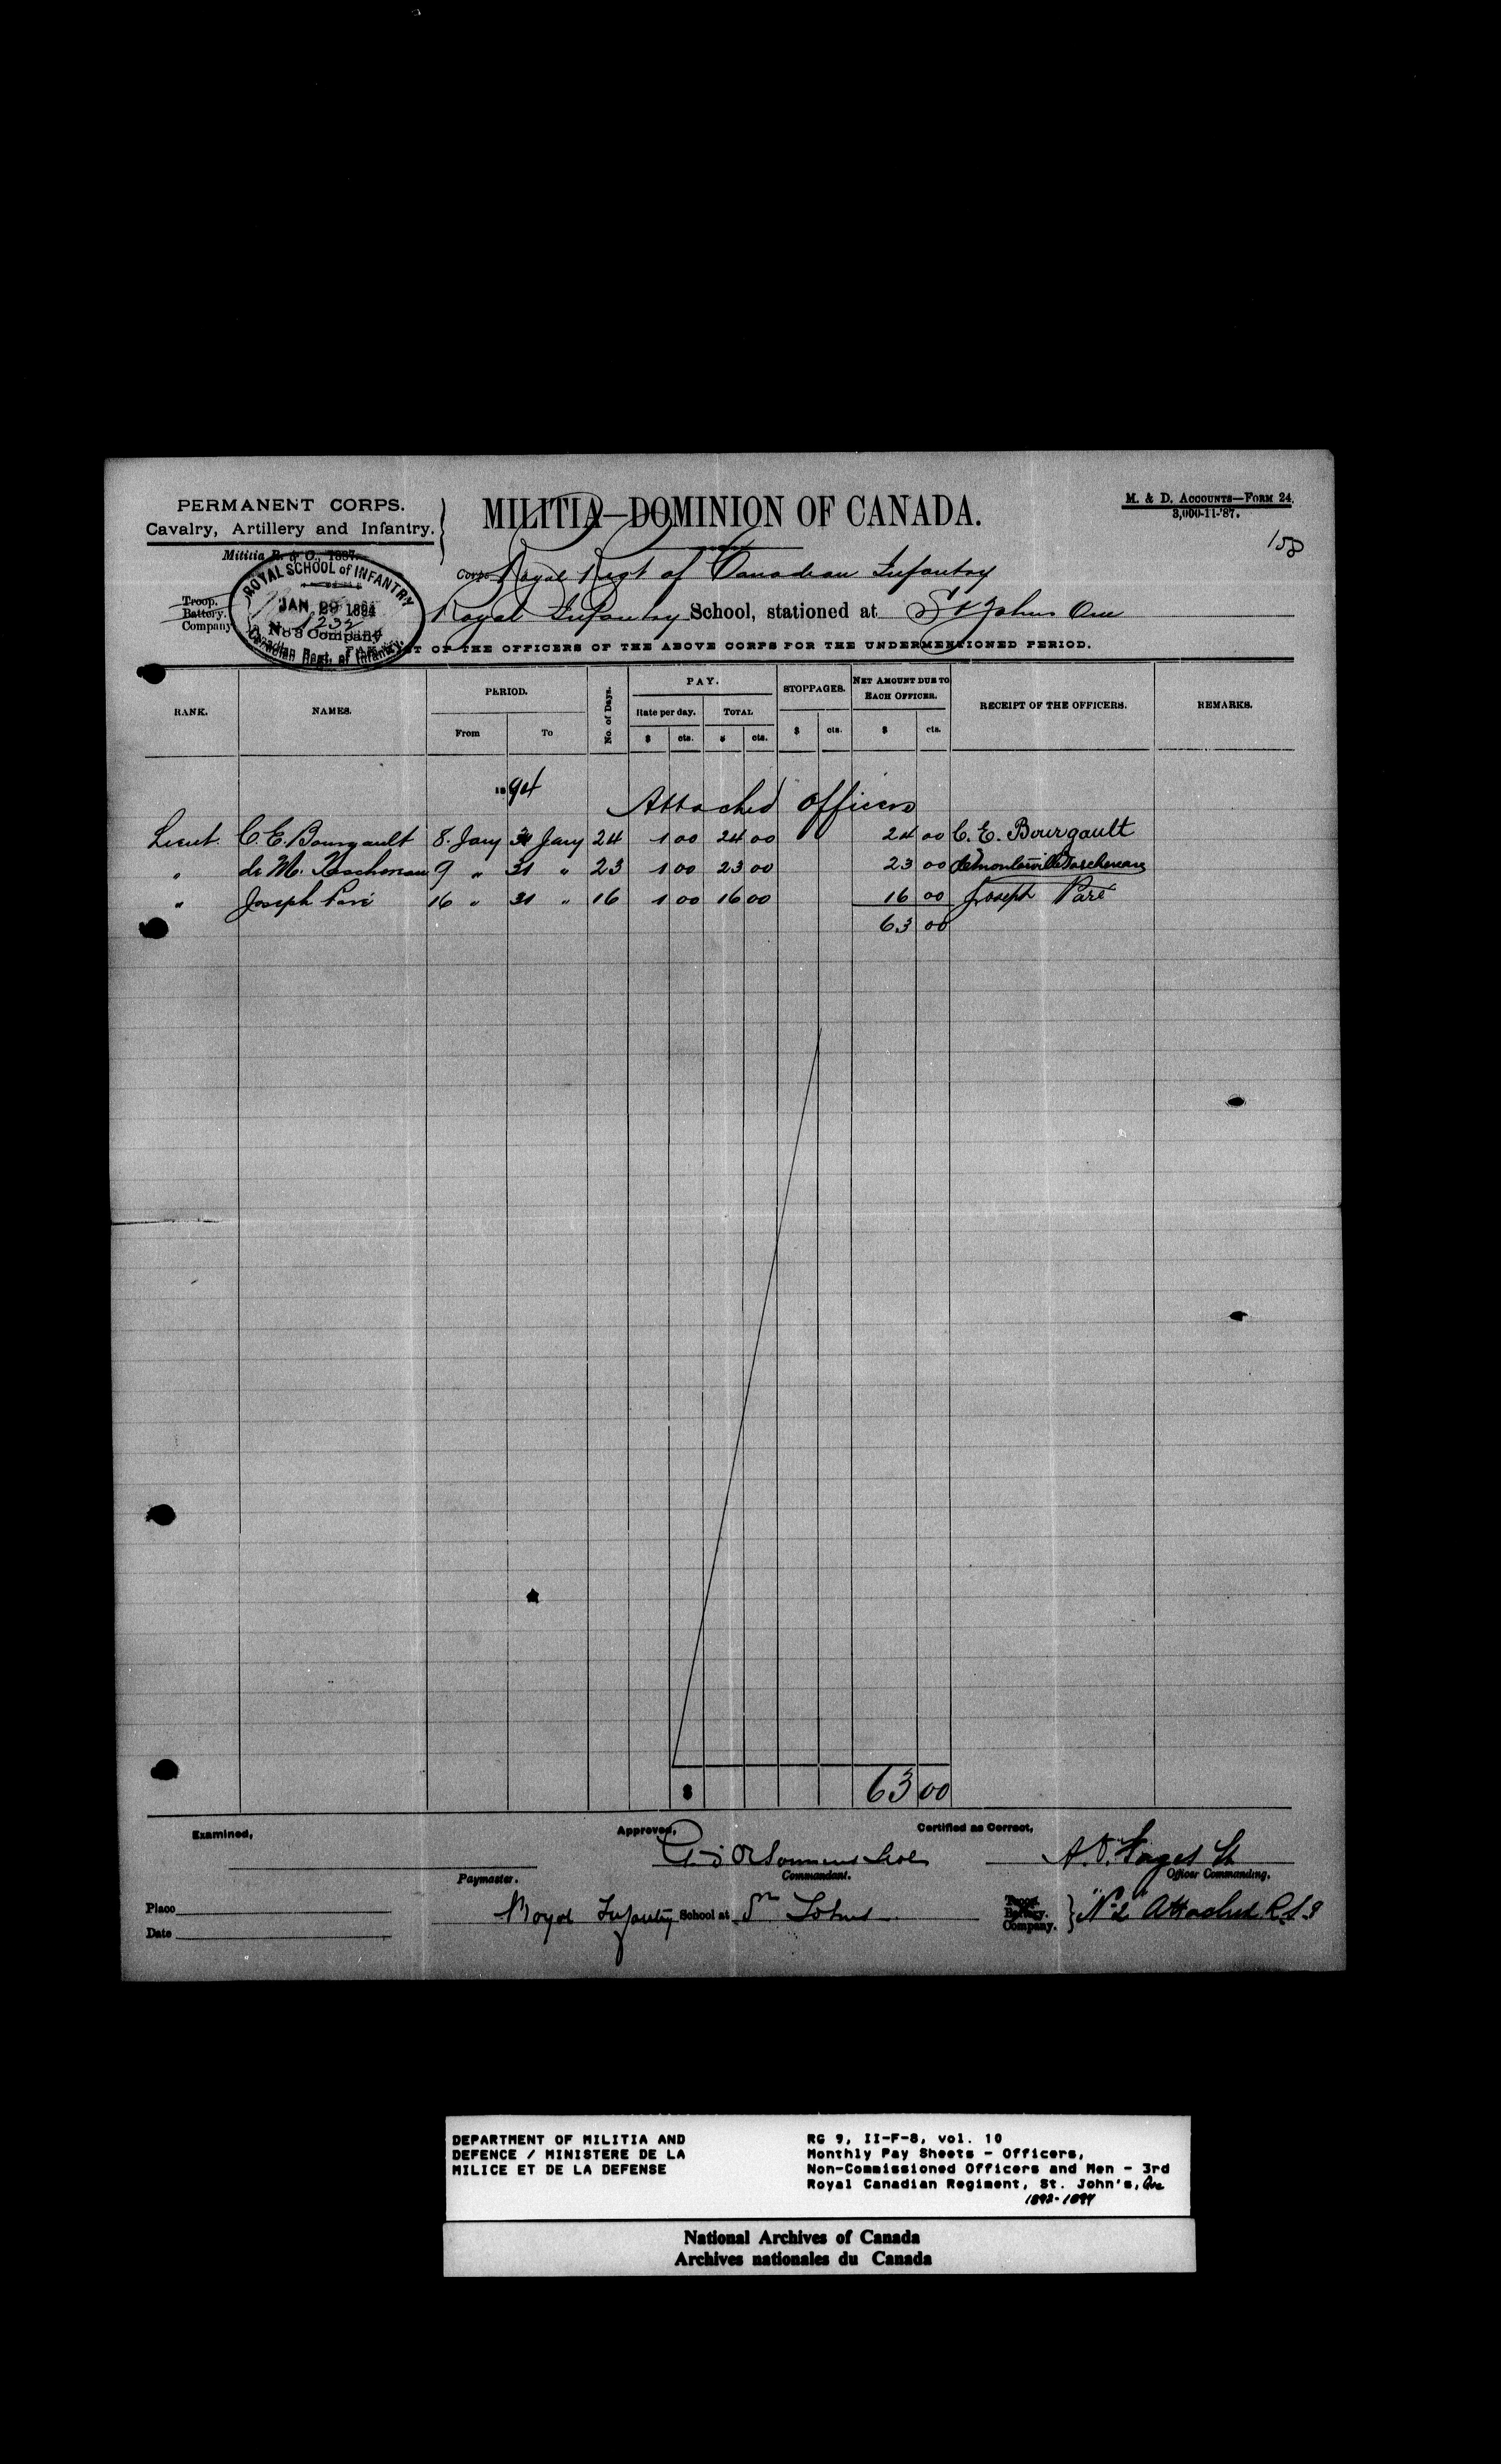 PERMANENT CORPS.
Cavalry, Artillery and Infantry.
MILITIA—DOMINION OF CANADA.
M. & D. Accounts—Form 24.
3,000-11-'87.
158
Militia R. & O., 1887.
ROYAL SCHOOL of INFANTRY
JAN 29 1894
1232
No 3 Company
Canadian Regt. of Infantry.
Corps Royal Regt of Canadian Infantry
Troop.
Battery.
Company
Royal Infantry School, stationed at St Johns Que
OF THE OFFICERS OF THE ABOVE CORPS FOR THE UNDERMENTIONED PERIOD.
RANK. NAMES. PERIOD. From To No. of Days. PAY. Rate per day. $ cts. TOTAL $ cts. STOPPAGES. $ cts. NET AMOUNT DUE TO EACH OFFICER. $ cts. RECEIPT OF THE OFFICERS. REMARKS.
1894
Attached Officers
Lieut. C. E. Bourgault 8. Jany 31 Jany 24 1 00 24 00 24 00 C. E. Bourgault
" de M. Taschereau 9 " 31 " 23 1 00 23 00 23 00 deMontarville Taschereau
" Joseph Paré 16 " 31 " 16 1 00 16 00 16 00 Joseph Paré
63 00
$ 63 00
Examined, Approved, Certified as Correct,
Paymaster. Commandant. Officer Commanding.
Place
Date
Royal Infantry School at St Johns
Troop.
Battery.
Company. } No 2 Attached R.S.I
DEPARTMENT OF MILITIA AND
DEFENCE / MINISTERE DE LA
MILICE ET DE LA DEFENSE
RG 9, II-F-8, vol. 10
Monthly Pay Sheets - Officers,
Non-Commissioned Officers and Men - 3rd
Royal Canadian Regiment, St. John's, Que
1892-1894
National Archives of Canada
Archives nationales du Canada